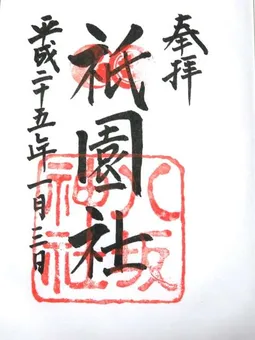 奉拝
祇園社
平成二十五年一月三日
八坂
神社